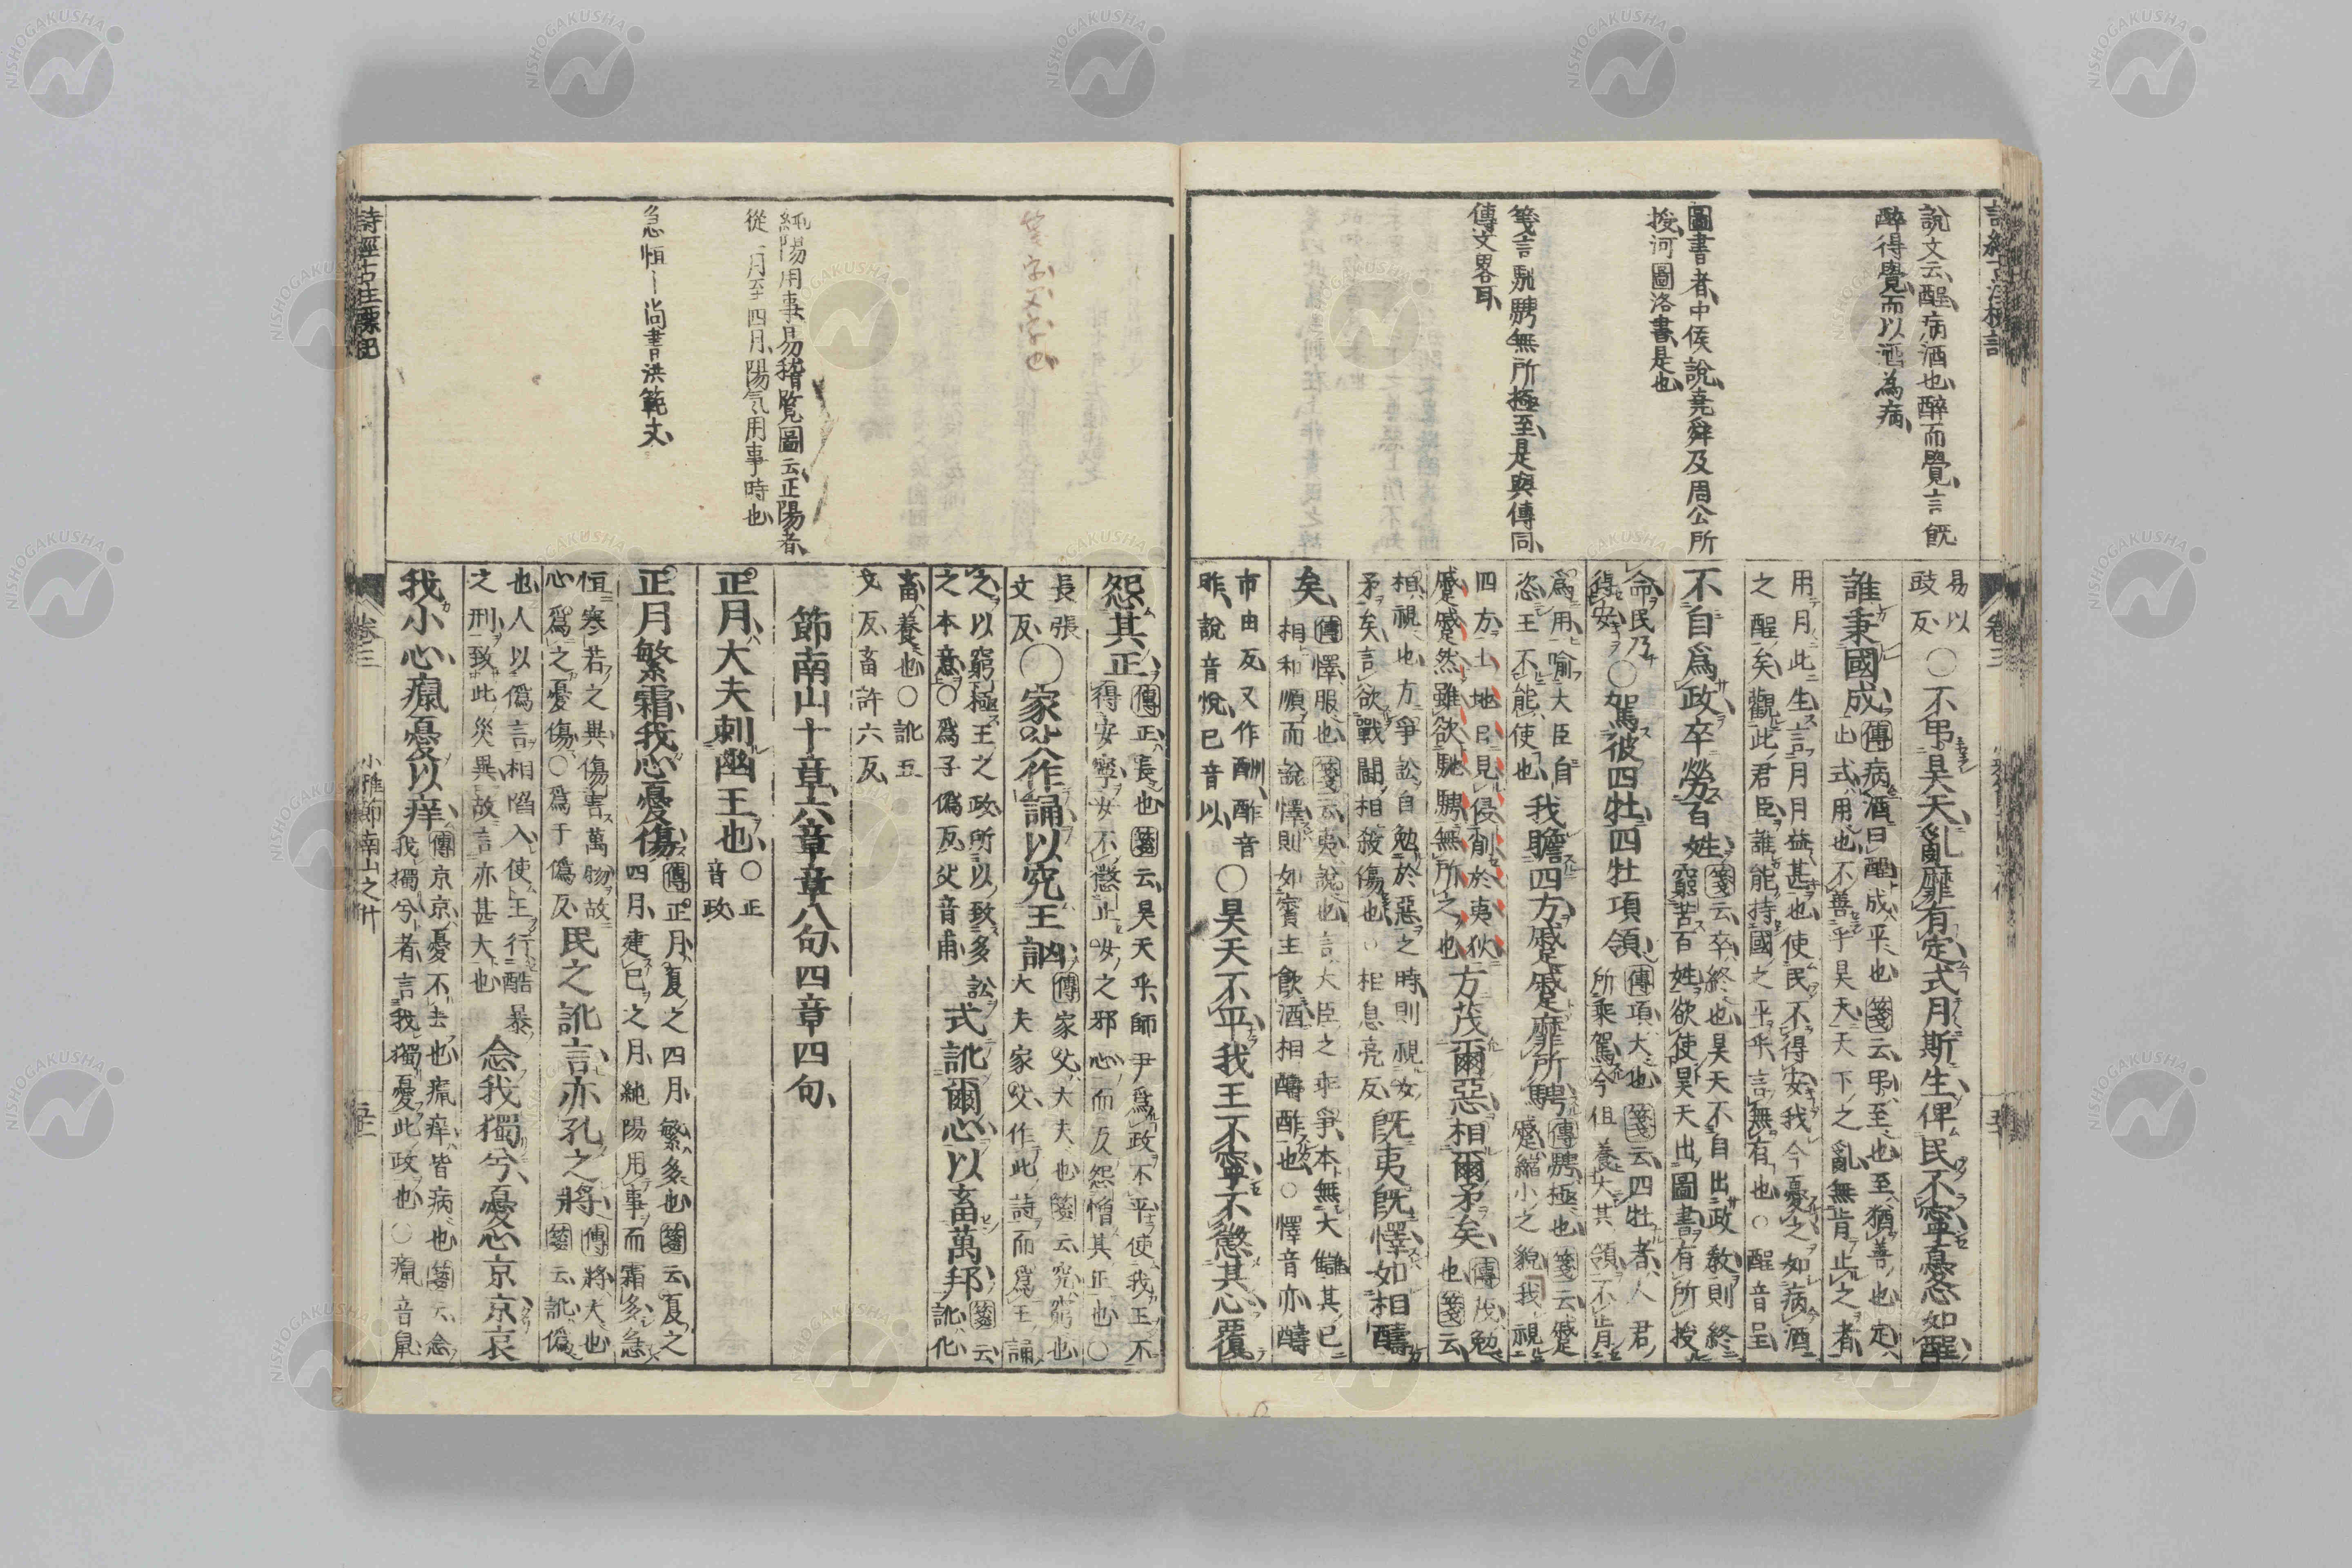 說文云醒病酒也醉而覺言既
醉得覺而以酒為病
圖書者中候說堯舜及周公所
授河圖洛書是也
箋言馳騁無所極至是與傳同
傳文畧耳
易以
豉反
○不弔昊天亂靡有定式月斯生俾民不寧憂心如酲
誰秉國成
傳病酒曰酲成平也箋云弔至也至猶善也定
止式用也不善乎昊天天下之亂無肯止之者
用月此生言月月益甚也使民不得安我今憂之如病酒
之酲矣觀此君臣誰能持國之平乎言無有也○酲音呈
不自爲政卒勞百姓
箋云卒終也昊天不自出政敎則終
窮苦百姓欲使昊天出圖書有所授
命民乃
得安
○駕彼四牡四牡項領
傳項大也箋云四牡者人君
所乘駕今但養大其領不肯
爲用喻大臣自
恣王不能使也
我瞻四方蹙蹙靡所騁
傳騁極也箋云蹙
蹙縮小之貌我視
四方土地日見侵削於夷狄
蹙蹙然雖欲馳騁無所之也
方茂爾惡相爾矛矣
傳茂勉
也箋云
相視也方爭訟自勉於惡之時則視女
矛矣言欲戰鬪相殺傷也○相息亮反
既夷既懌如相醻
矣
傳懌服也箋云夷說也言大臣之乖爭本無大讎其已
相和順而說懌則如賓主飮酒相醻酢也○懌音亦醻
市由反又作酬酢音
昨說音悅已音以
○昊天不平我王不寧不懲其心覆
詩經古注標記
卷三
純陽用事易稽覧圖云正陽者
從二月至四月陽気用事時也
急恒〡尚書洪範文
怨其正
傳正長也箋云昊天乎師尹爲政不平使我王不
得安寧女不懲止女之邪心而反怨憎其正也○
長張
丈反
○家父作誦以究王訩
傳家父大夫也箋云究窮也
大夫家父作此詩而爲王誦
之以窮極王之政所以致多訟
之本意○爲子僞反父音甫
式訛爾心以畜萬邦
箋云
訛化
畜養也○訛五
戈反畜許六反
節南山十章六章章八句四章四句
正月大夫刺幽王也
○正
音政
正月繁霜我心憂傷
傳正月夏之四月繁多也箋云夏之
四月建巳之月純陽用事而霜多急
恒寒若之異傷害萬物故
心爲之憂傷○爲于僞反
民之訛言亦孔之將
傳將大也
箋云訛僞
也人以僞言相陷入使王行酷暴
之刑致此災異故言亦甚大也
念我獨兮憂心京京哀
我小心癙憂以痒
傳京京憂不去也癙痒皆病也箋云念
我獨兮者言我獨憂此政也○癙音鼠
詩經古注標記
卷三
小雅節南山之什